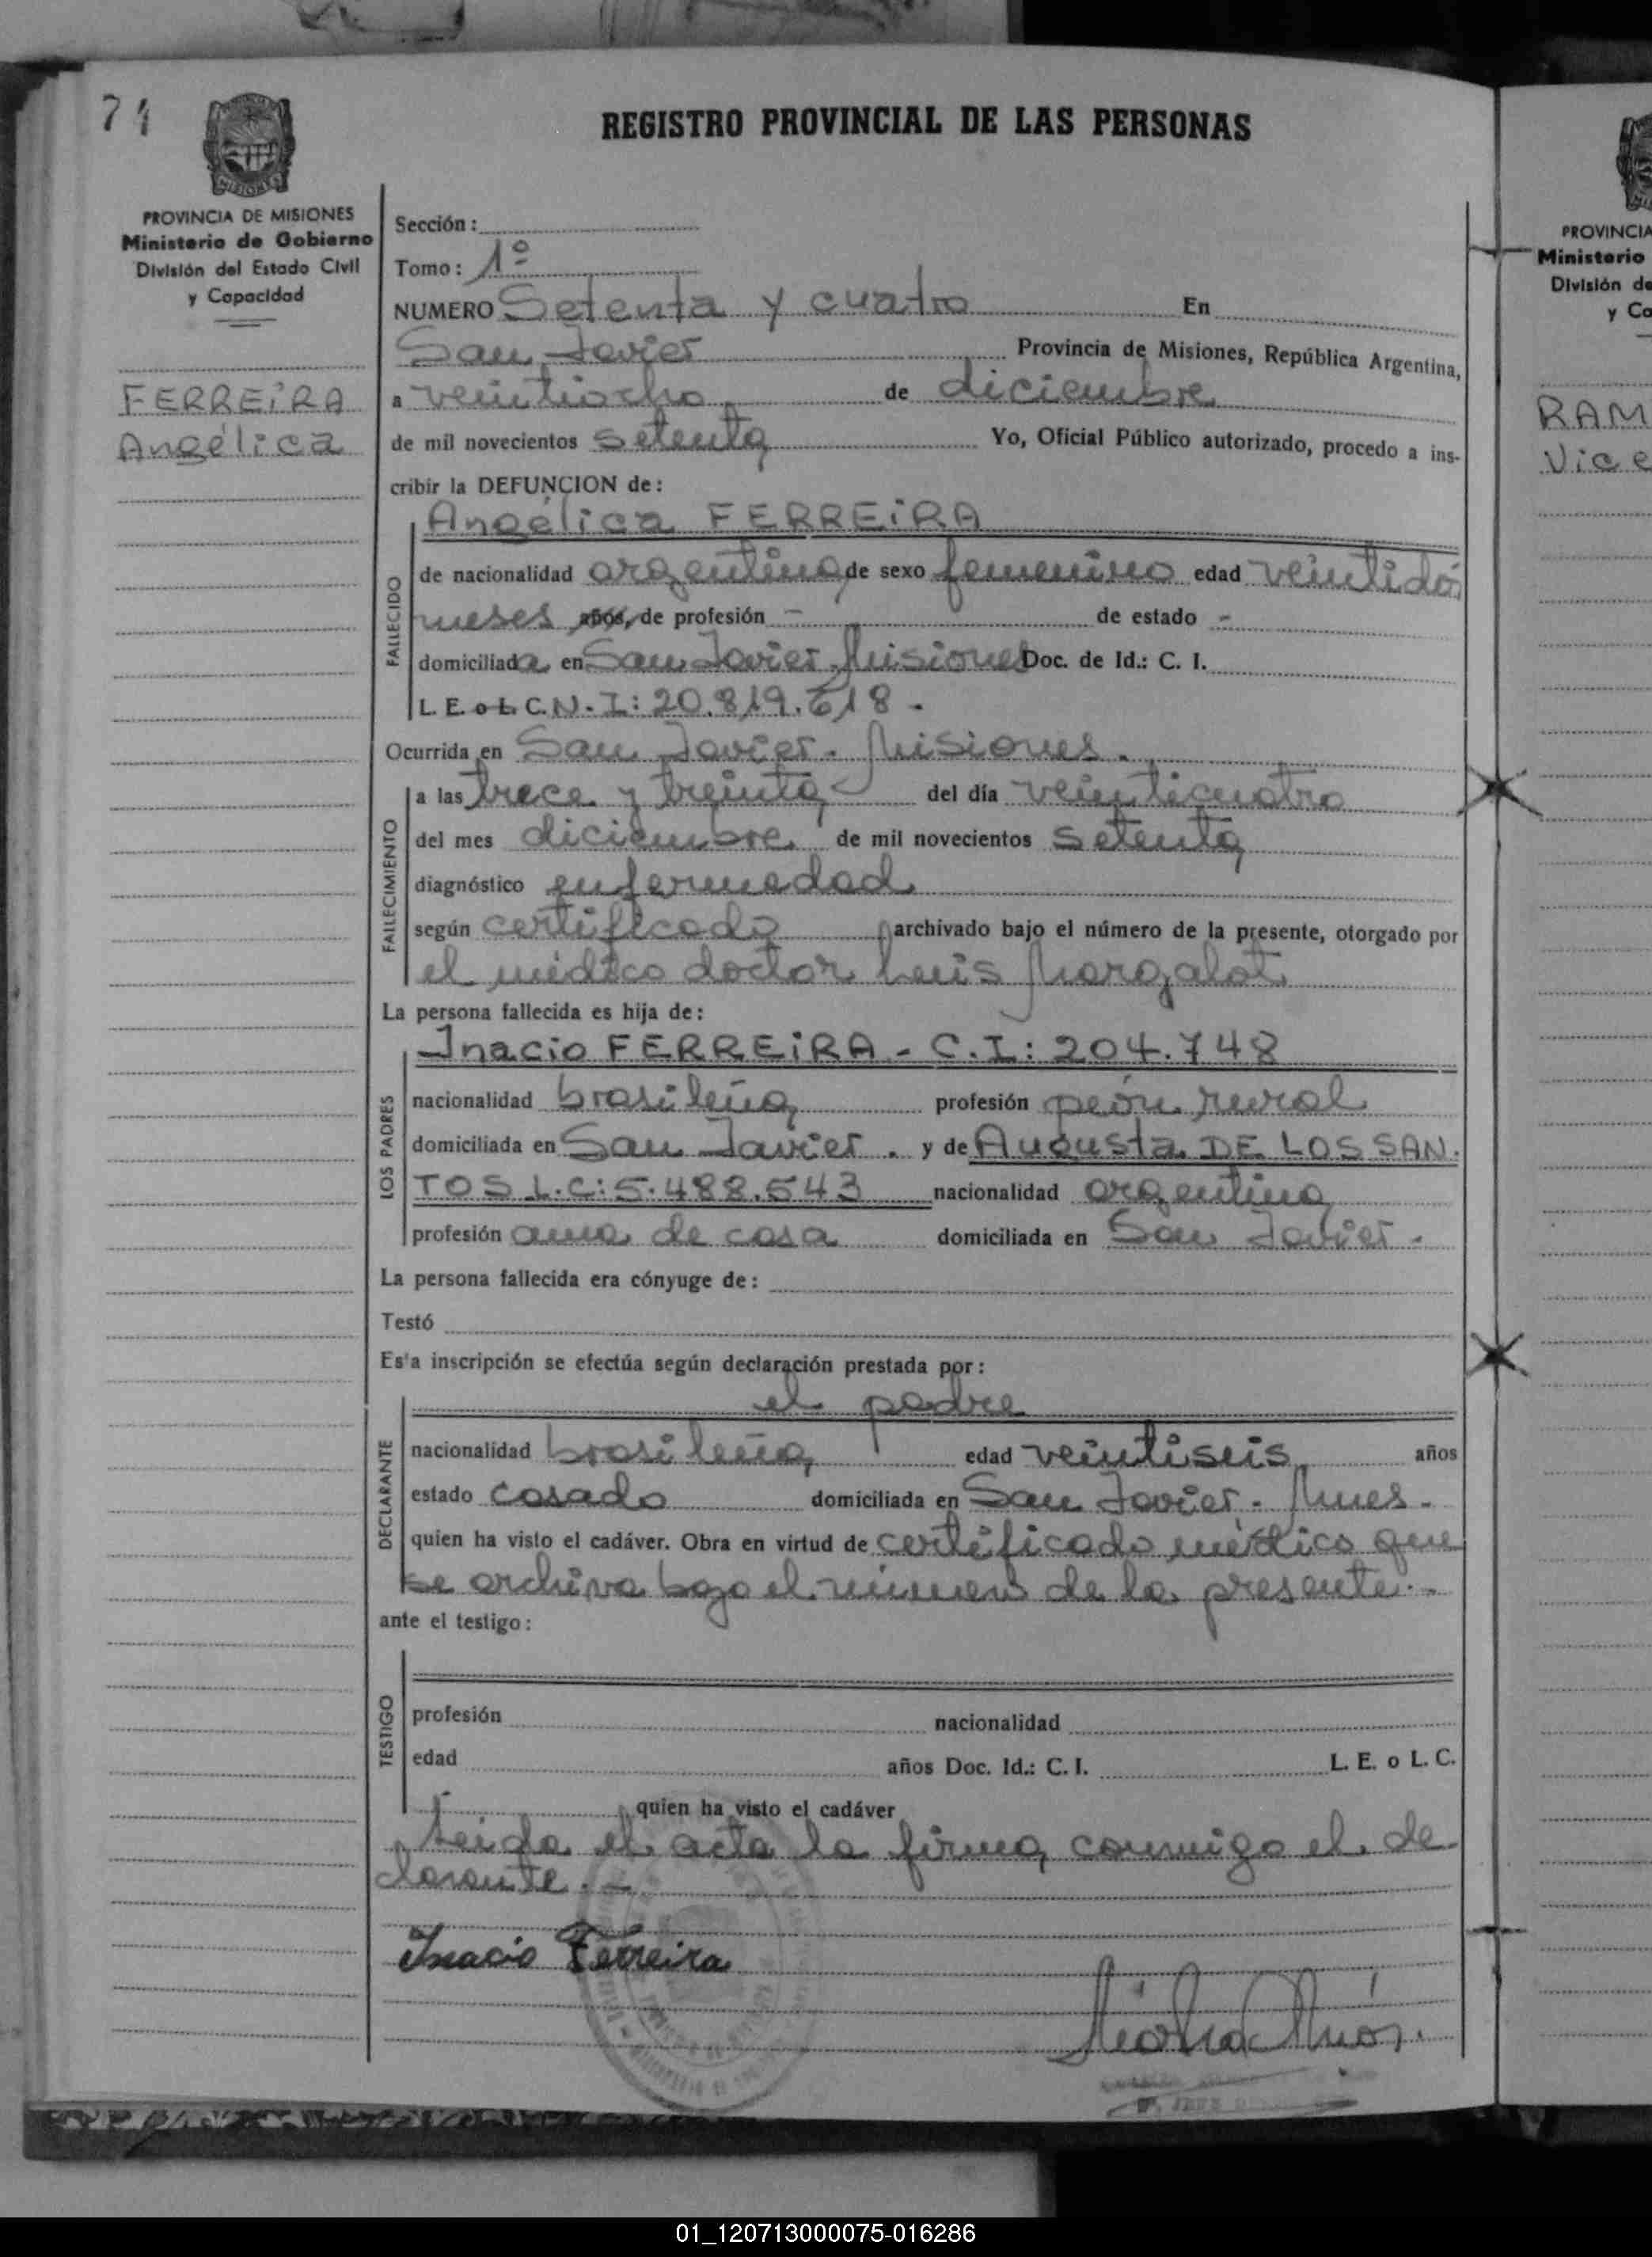 74
REGISTRO PROVINCIAL DE LAS PERSONAS
MISIONES
PROVINCIA DE MISIONES
Ministerio de Gobierno
División del Estado Civil
y Capacidad
FERREIRA
Angélica
Sección:
Tomo: 1º
NUMERO Setenta y cuatro En
San Javier Provincia de Misiones, República Argentina,
a veintiocho de diciembre
de mil novecientos setenta Yo, Oficial Público autorizado, procedo a ins-
cribir la DEFUNCION de:
Angélica FERREIRA
FALLECIDO
de nacionalidad argentina de sexo femenino edad veintidós
meses años, de profesión - de estado -
domiciliada en San Javier. Misiones Doc. de Id.: C. I.
L. E. o L. C. N. I: 20.819.618.
Ocurrida en San Javier. Misiones.
FALLECIMIENTO
a las trece y treinta del día veinticuatro
del mes diciembre de mil novecientos setenta
diagnóstico enfermedad
según certificado archivado bajo el número de la presente, otorgado por
el médico doctor Luis Margalot
La persona fallecida es hija de:
LOS PADRES
Inacio FERREIRA - C.I: 204.748
nacionalidad brasileña profesión peón rural
domiciliada en San Javier. y de Augusta DE LOS SAN.
TOS L.C: 5.488.543 nacionalidad argentina
profesión ama de casa domiciliada en San Javier.
La persona fallecida era cónyuge de:
Testó
Es'a inscripción se efectúa según declaración prestada por:
el padre
DECLARANTE
nacionalidad brasileña edad veintiseis años
estado casado domiciliada en San Javier. Mnes.
quien ha visto el cadáver. Obra en virtud de certificado médico que
se archiva bajo el número de la presente.-
ante el testigo:
TESTIGO
profesión nacionalidad
edad años Doc. Id.: C. I. L. E. o L. C.
quien ha visto el cadáver
Leida el acta la firma conmigo el de
clarante.-
Inacio Ferreira
PROVINCIA
Ministerio
División de
y Ca
RAM
Vice
01_120713000075-016286